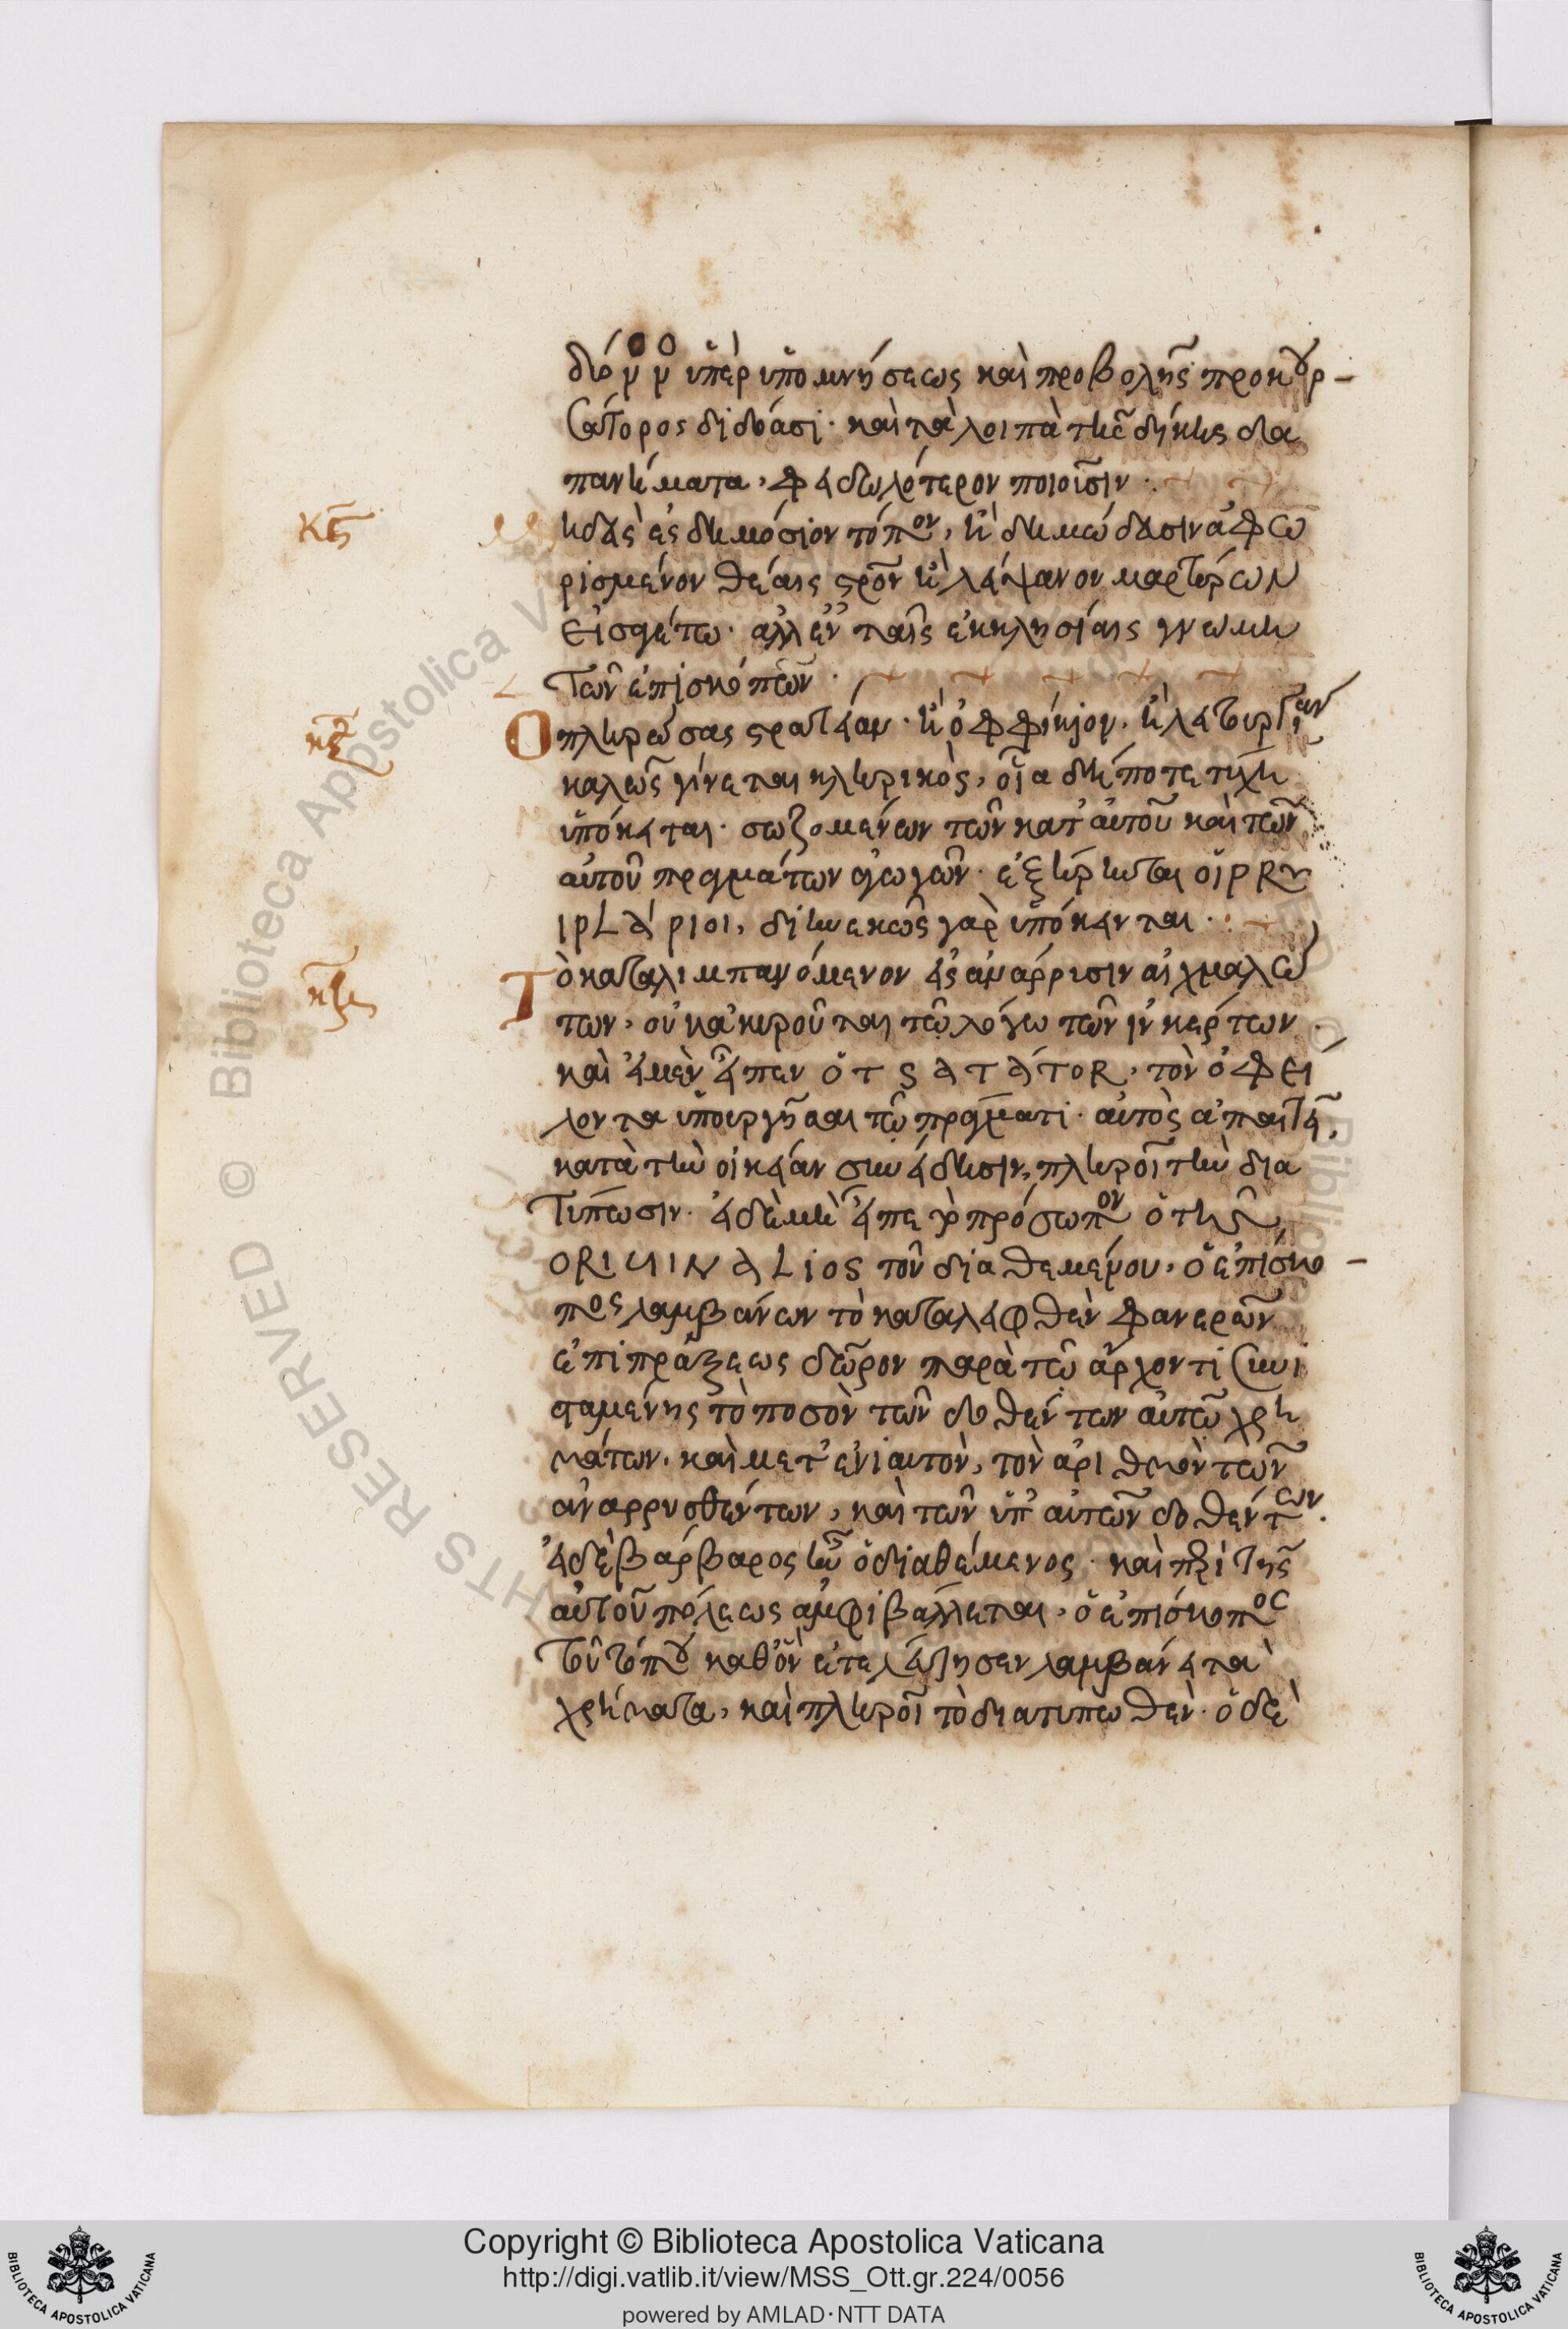 διό νν ὑπὲρ ὑπομνήσεως καὶ προβολῆς προκουρ-
άτορος διδόασι· καὶ τὰ λοιπὰ τῆς δίκης δα
πανήματα, φειδωλότερον ποιοῦσιν·
κϛ
μηδεὶς εἰς δημόσιον τόπον, ἢ δημώδασιν ἀφω
ρισμένον θείαις λείψανον μαρτύρων
εἰσφέτω· ἀλλ' ἐν ταῖς ἐκκλησίαις γνώμη
τῶν ἐπισκόπων·
κζ
Ὁ πληρώσας στρατείαν· ἢ ὀφφίκιον, ἢ λειτουργίαν
καλῶς γίνεται κληρικὸς, οἵα δήποτε τύχη
ὑπόκειται· σωζομένων τῶν κατ' αὐτοῦ καὶ τῶν
αὐτοῦ πραγμάτων ἀγωγῶν· ἐξῄρηνται οἱ PRI
IPLάριοι, διηνεκῶς γὰρ ὑπόκεινται·
κη
Τὸ καταλιμπανόμενον εἰς ἀνάρρισιν αἰχμαλώ
των, οὐκ ἀκυροῦται τῷ λόγω τῶν ἰνκέρτων·
καὶ εἰ μὲν εἶπεν ὁ TSATάTOR, τὸν ὀφεί
λοντα ὑπουργῆσαι τῷ πράγματι· αὐτὸς ἀπαιτεῖ,
κατὰ τὴν οἰκείαν συνείδησιν, πληροῖ τὴν δια
τύπωσιν· εἰ δὲ μὴ εἶπε τὸ πρόσωπον ὁ τῆς
ORIGINALIOS τοῦ διαθεμένου, ὁ ἐπίσκο-
πος λαμβάνων τὸ καταλειφθὲν φανερῶν
ἐπὶ πράξεως δῶρον παρὰ τῷ ἄρχοντι συνι
σταμένης τὸ ποσὸν τῶν δοθέντων αὐτῷ χρη
μάτων· καὶ μετ' ἐνιαυτὸν, τὸν ἀριθμὸν τῶν
ἀναρρυσθέντων, καὶ τῶν ὑπ' αὐτῶν δοθέντων.
εἰ δὲ βάρβαρος ἦν ὁ διαθέμενος· καὶ περὶ τῆς
αὐτοῦ πόλεως ἀμφιβάλλεται, ὁ ἐπίσκοπος
τοῦ τόπου καθ' ὃν ἐτελεύτησεν λαμβάνει τὰ
χρήματα, καὶ πληροῖ τὸ διατυπωθὲν· ὁ δὲ
RIGHTS RESERVED © Biblioteca Apostolica V
Copyright © Biblioteca Apostolica Vaticana
http://digi.vatlib.it/view/MSS_Ott.gr.224/0056
powered by AMLAD·NTT DATA
BIBLIOTECA APOSTOLICA VATICANA
BIBLIOTECA APOSTOLICA VATICANA